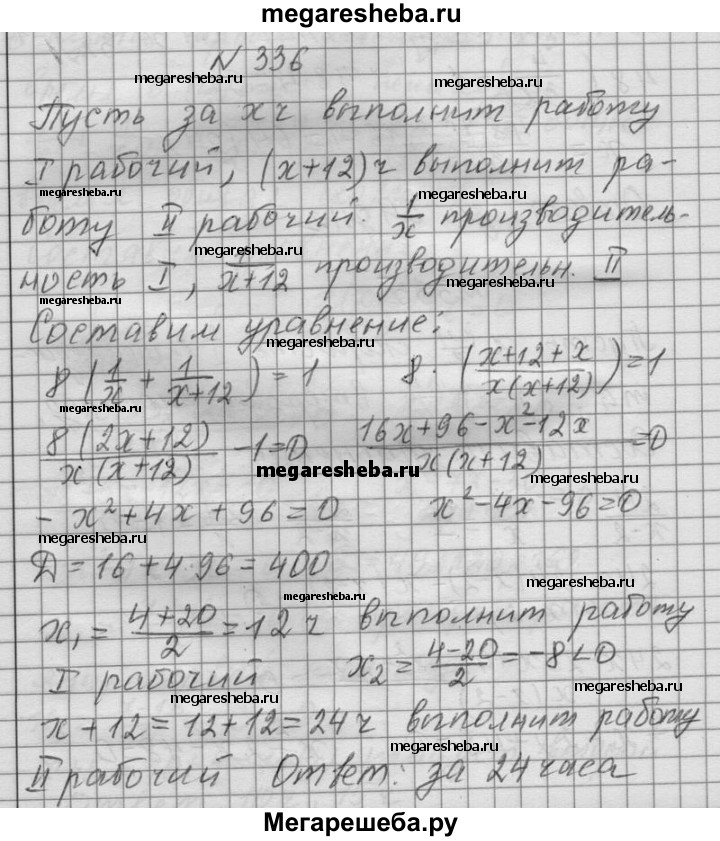 megaresheba.ru
N 336
megaresheba.ru megaresheba.ru
Пусть за x ч выполнит работу
I рабочий, (x+12) ч выполнит ра-
megaresheba.ru megaresheba.ru
боту II рабочий. 1/x производитель-
megaresheba.ru
ность I, 1/(x+12) производительн. II
megaresheba.ru megaresheba.ru
Составим уравнение:
megaresheba.ru
8(1/x + 1/(x+12)) = 1 8·((x+12+x)/(x(x+12)))=1
megaresheba.ru megaresheba.ru
8(2x+12)/(x(x+12)) -1=0 (16x+96-x²-12x)/(x(x+12))=0
megaresheba.ru
-x²+4x+96=0 x²-4x-96=0
megaresheba.ru
Д=16+4·96=400
megaresheba.ru megaresheba.ru
x₁=(4+20)/2=12 ч выполнит работу
I рабочий x₂=(4-20)/2=-8<0
megaresheba.ru megaresheba.ru
x+12=12+12=24 ч выполнит работу
megaresheba.ru
II рабочий Ответ: за 24 часа
Мегарешеба.ру